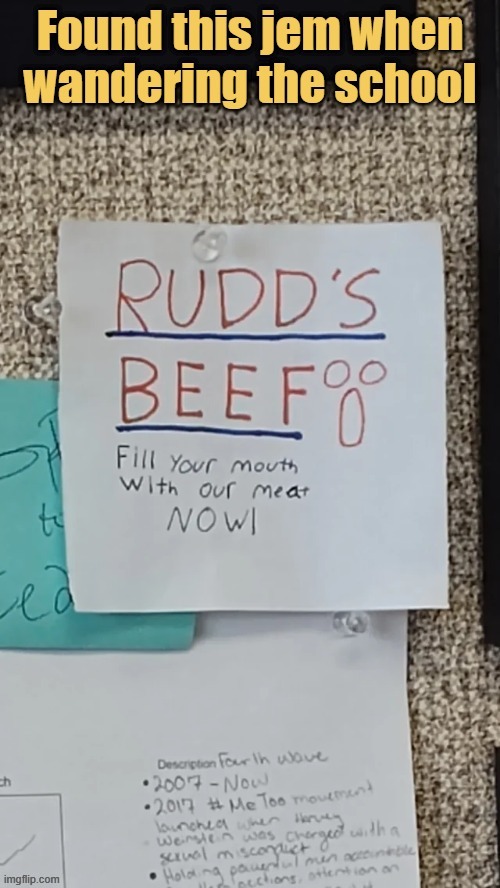 Found this jem when
wandering the school
RUDD'S
BEEF
Fill your mouth
with our meat
NOW!
Description Fourth wave
• 2007 - Now
• 2017 # Me Too movement
launched when Harvey
Weinstein was charged with a
sexual misconduct
• Holding powerful men accountable
actions, attention on
imgflip.com